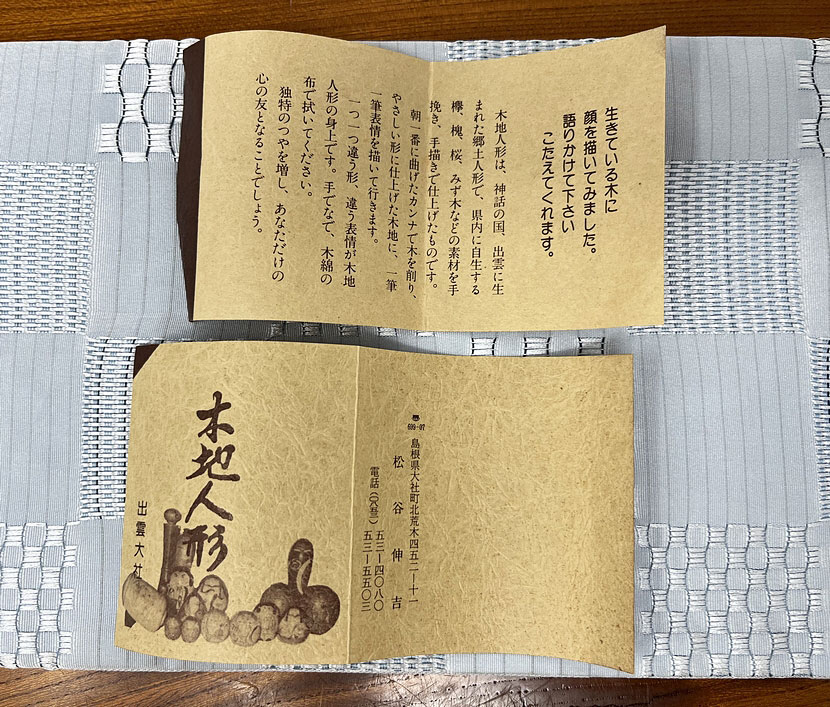 生きている木に
顔を描いてみました。
語りかけて下さい
こたえてくれます。
木地人形は、神話の国、出雲に生
まれた郷土人形で、県内に自生する
欅、槐、桜、みず木などの素材を手
挽き、手描きで仕上げたものです。
朝一番に曲げたカンナで木を削り、
やさしい形に仕上げた木地に、一筆
一筆表情を描いて行きます。
一つ一つ違う形、違う表情が木地
人形の身上です。手でなで、木綿の
布で拭いてください。
独特のつやを増し、あなただけの
心の友となることでしょう。
〠699-07
島根県大社町北荒木四五二ー十一
松谷伸吉
電話(〇八五三)
五三ー四〇八〇
五三ー五五〇三
木地人形
出雲大社